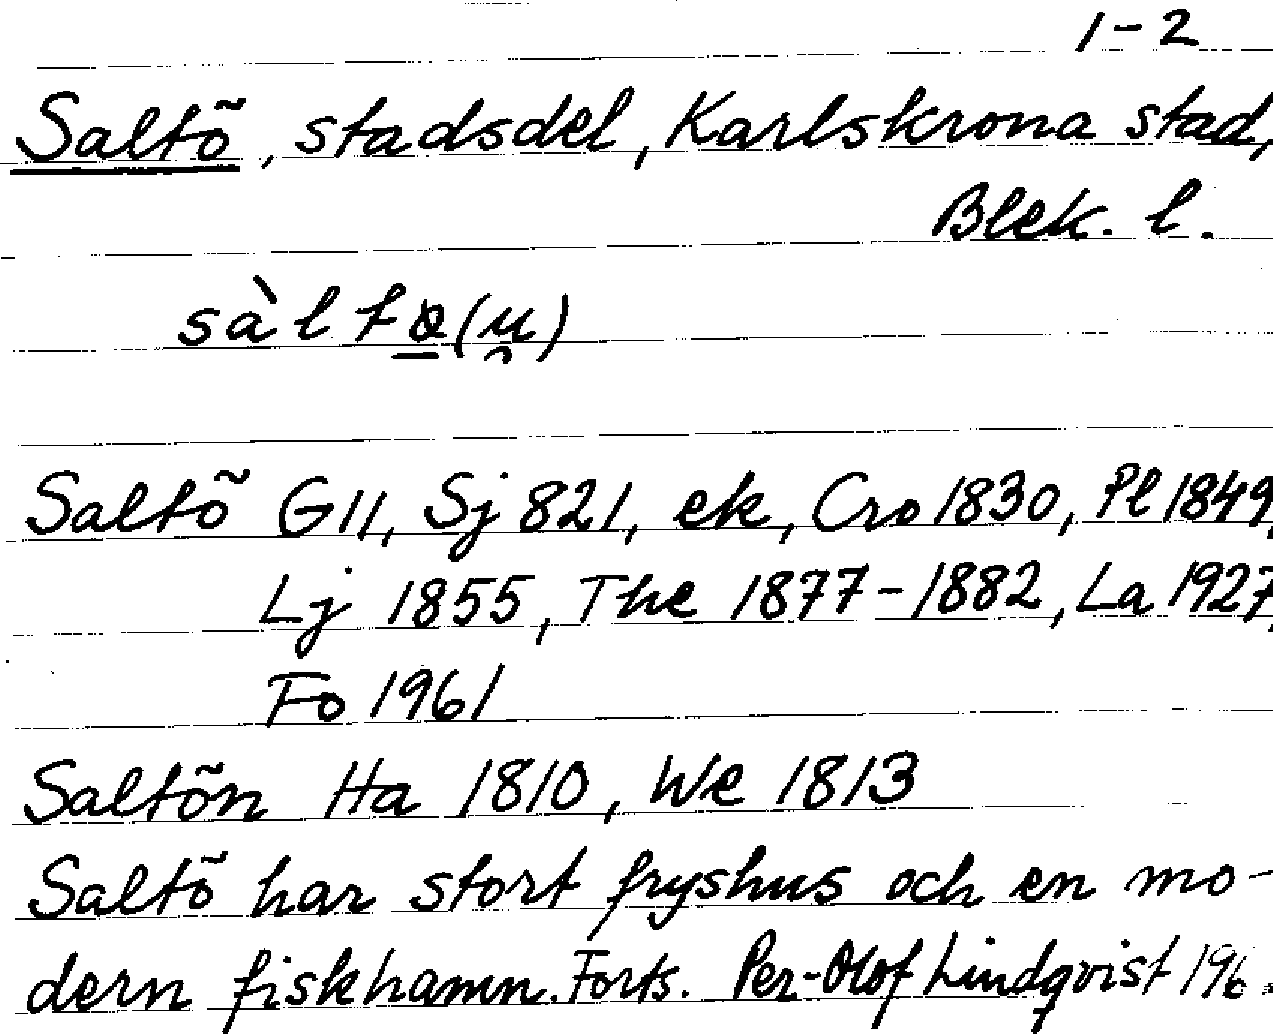 1-2
Saltö, stadsdel, Karlskrona stad,
Blek. l.
sàltø(u̯)
Saltö G11, Sj 821, ek, Cro 1830, Pl 1849,
Lj 1855, The 1877-1882, La 1927,
Fo 1961
Saltön Ha 1810, We 1813
Saltö har stort fryshus och en mo-
dern fiskhamn. Forts. Per-Olof Lindqvist